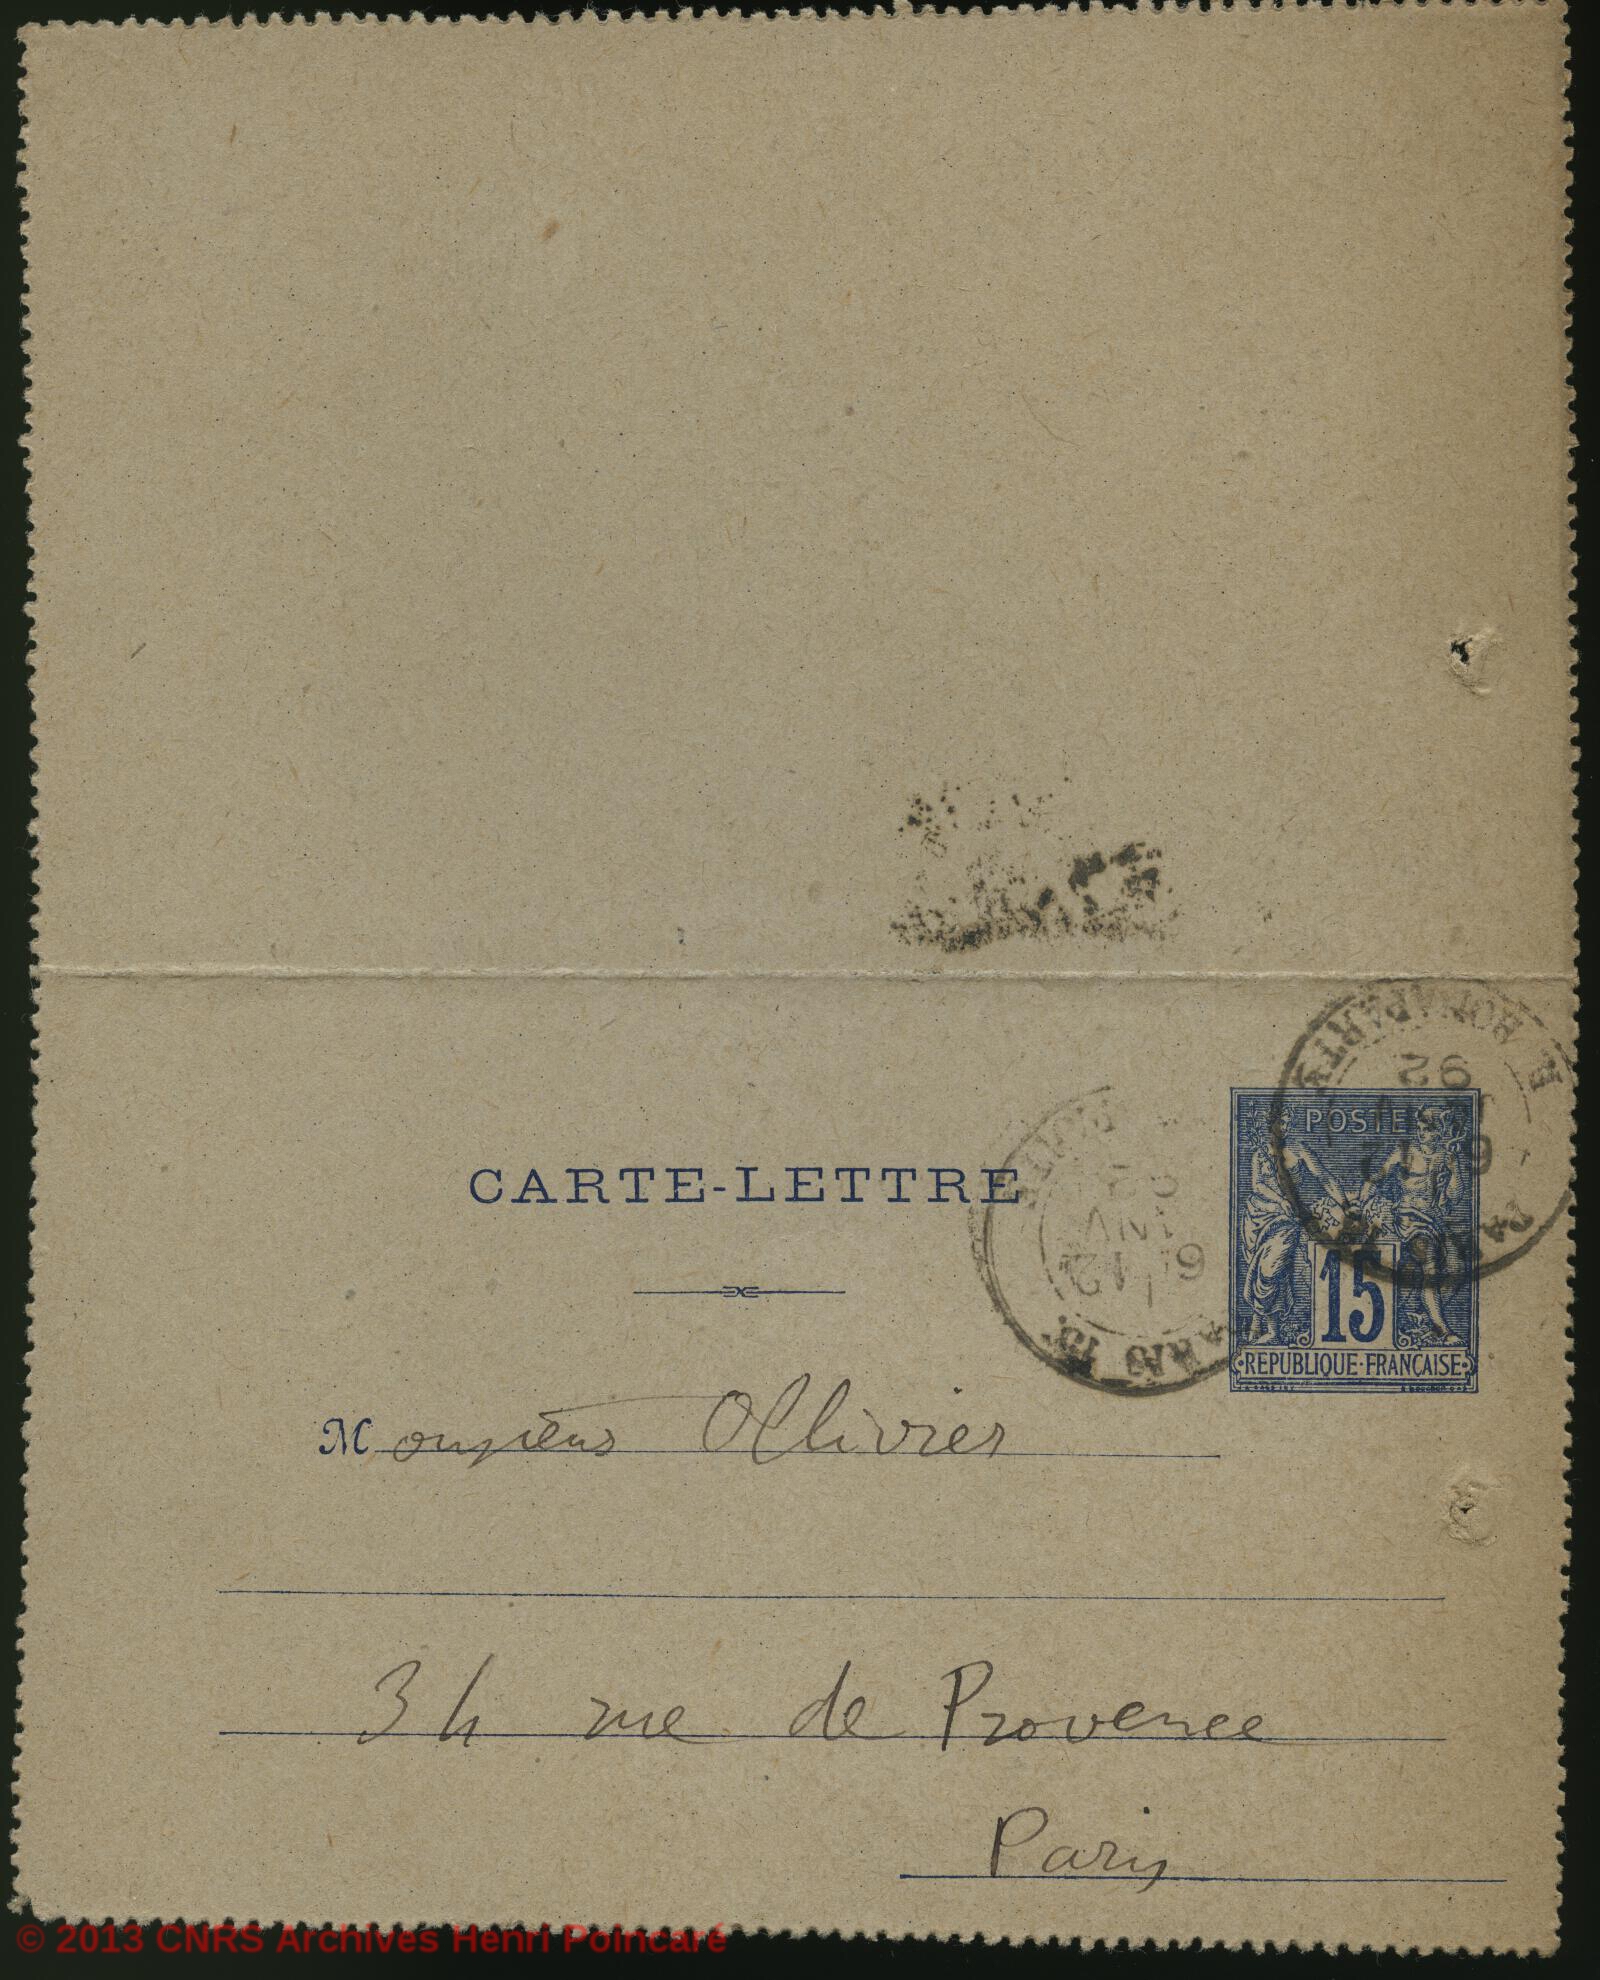 R. BONAPARTE
92
CARTE-LETTRE
POSTES
JANV
6
12
PARIS
15
REPUBLIQUE FRANÇAISE
Monsieur Ollivier
34 rue de Provence
Paris
© 2013 CNRS Archives Henri Poincaré